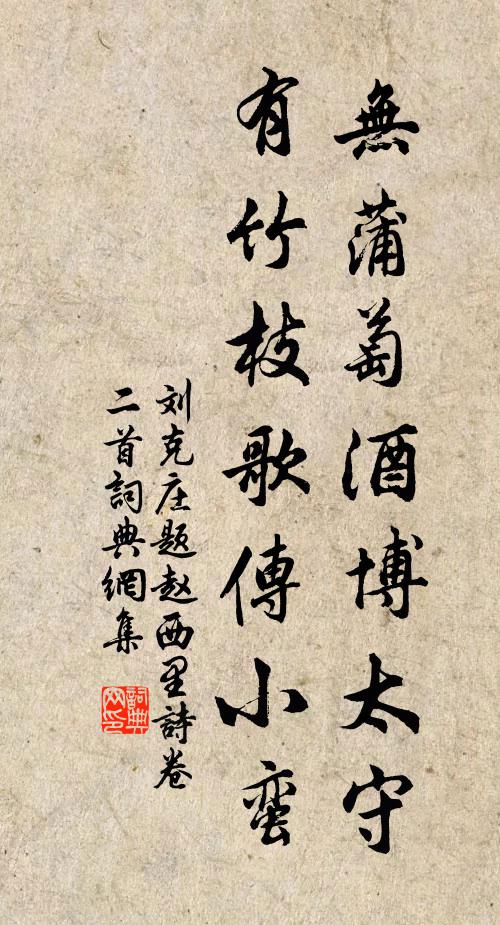 無蒲萄酒博太守
有竹枝歌傳小蛮
刘克庄题赵西里詩卷
二首詞典網集
詞典
网印